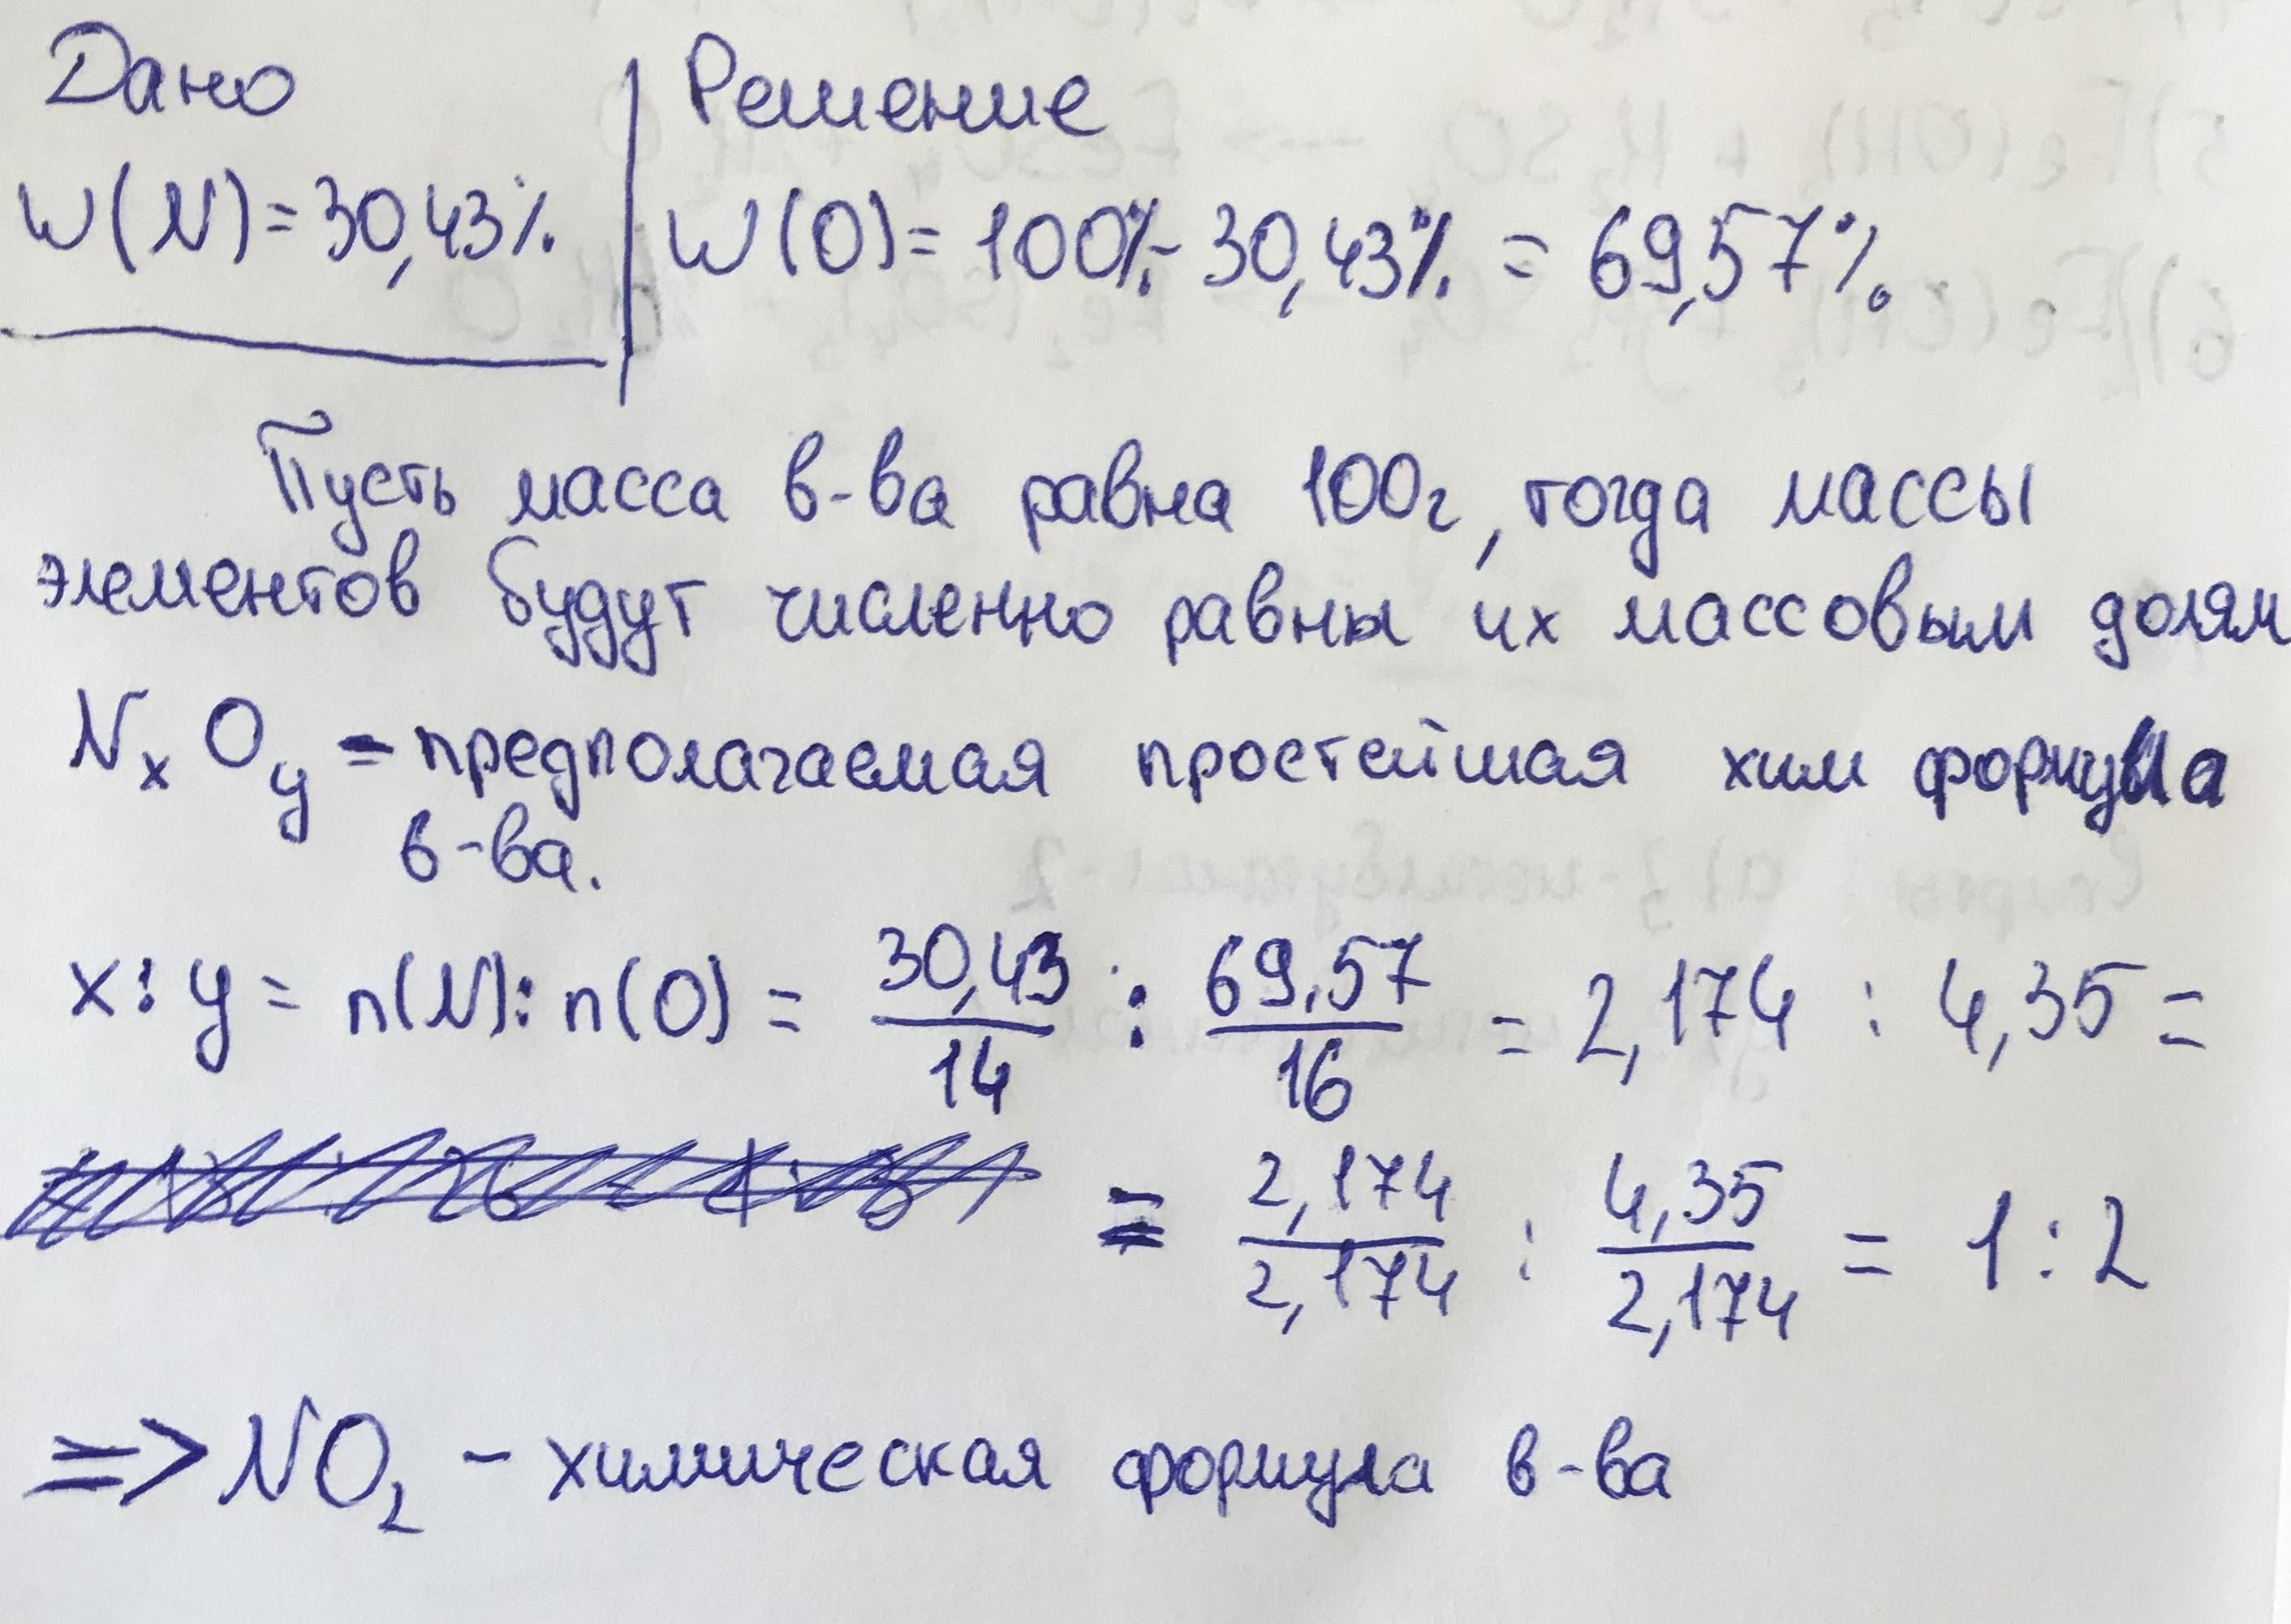 Дано
Решение
W(N)=30,43%
W(O)= 100%- 30,43% = 69,57%
Пусть масса в-ва равна 100г, тогда массы
элементов будут численно равны их массовым долям
NxOy - предполагаемая простейшая хим формула
в-ва.
x:y = n(N):n(O) = 30,43/14 : 69,57/16 = 2,174 : 4,35 =
= 2,174/2,174 : 4,35/2,174 = 1:2
=> NO₂ - химическая формула в-ва